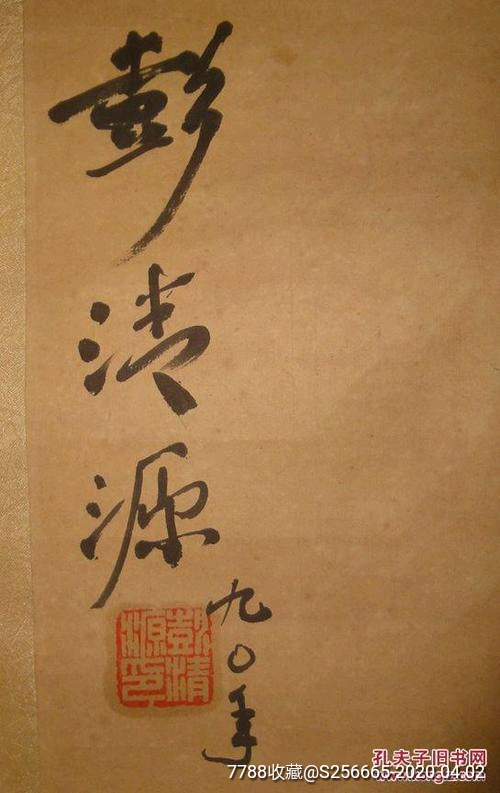 彭清源
九〇年
彭清
源印
孔夫子旧书网
7788收藏@S256665-2020.04.02